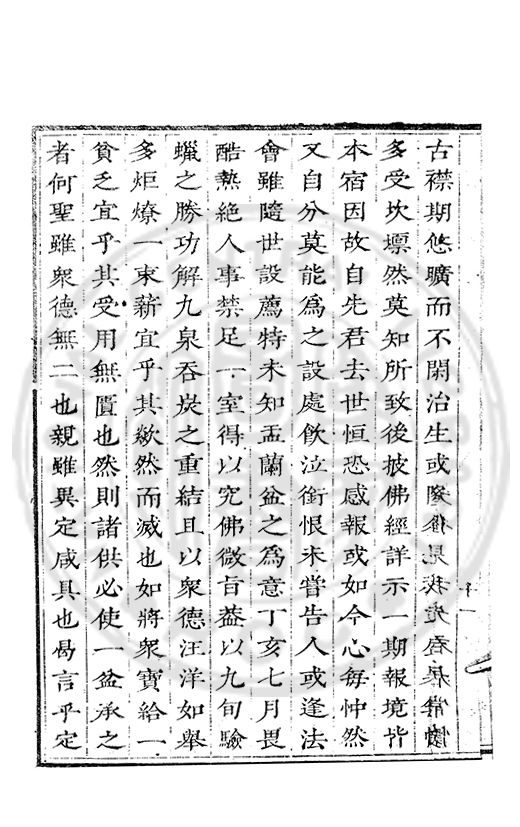 古襟期悠曠而不閑治生或
多受坎壈然莫知所致後披佛經詳示一期報境皆
本宿因故自先君去世恒恐感報或如今心每忡然
又自分莫能為之設處飲泣銜恨未嘗告人或逢法
會雖隨世設薦特未知盂蘭盆之為意丁亥七月畏
酷熱絕人事禁足一室得以究佛微旨葢以九旬驗
蠟之勝功解九泉吞炭之重結且以眾德汪洋如舉
多炬燎一束薪宜乎其歘然而滅也如將眾寶給一
貧乏宜乎其受用無匱也然則諸供必使一盆承之
者何聖雖眾德無二也親雖異定咸具也曷言乎定
十一